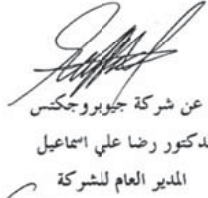 عن شركة جيوبروجكتس
لدكتور رضا علي اسماعيل
المدير العام للشركة